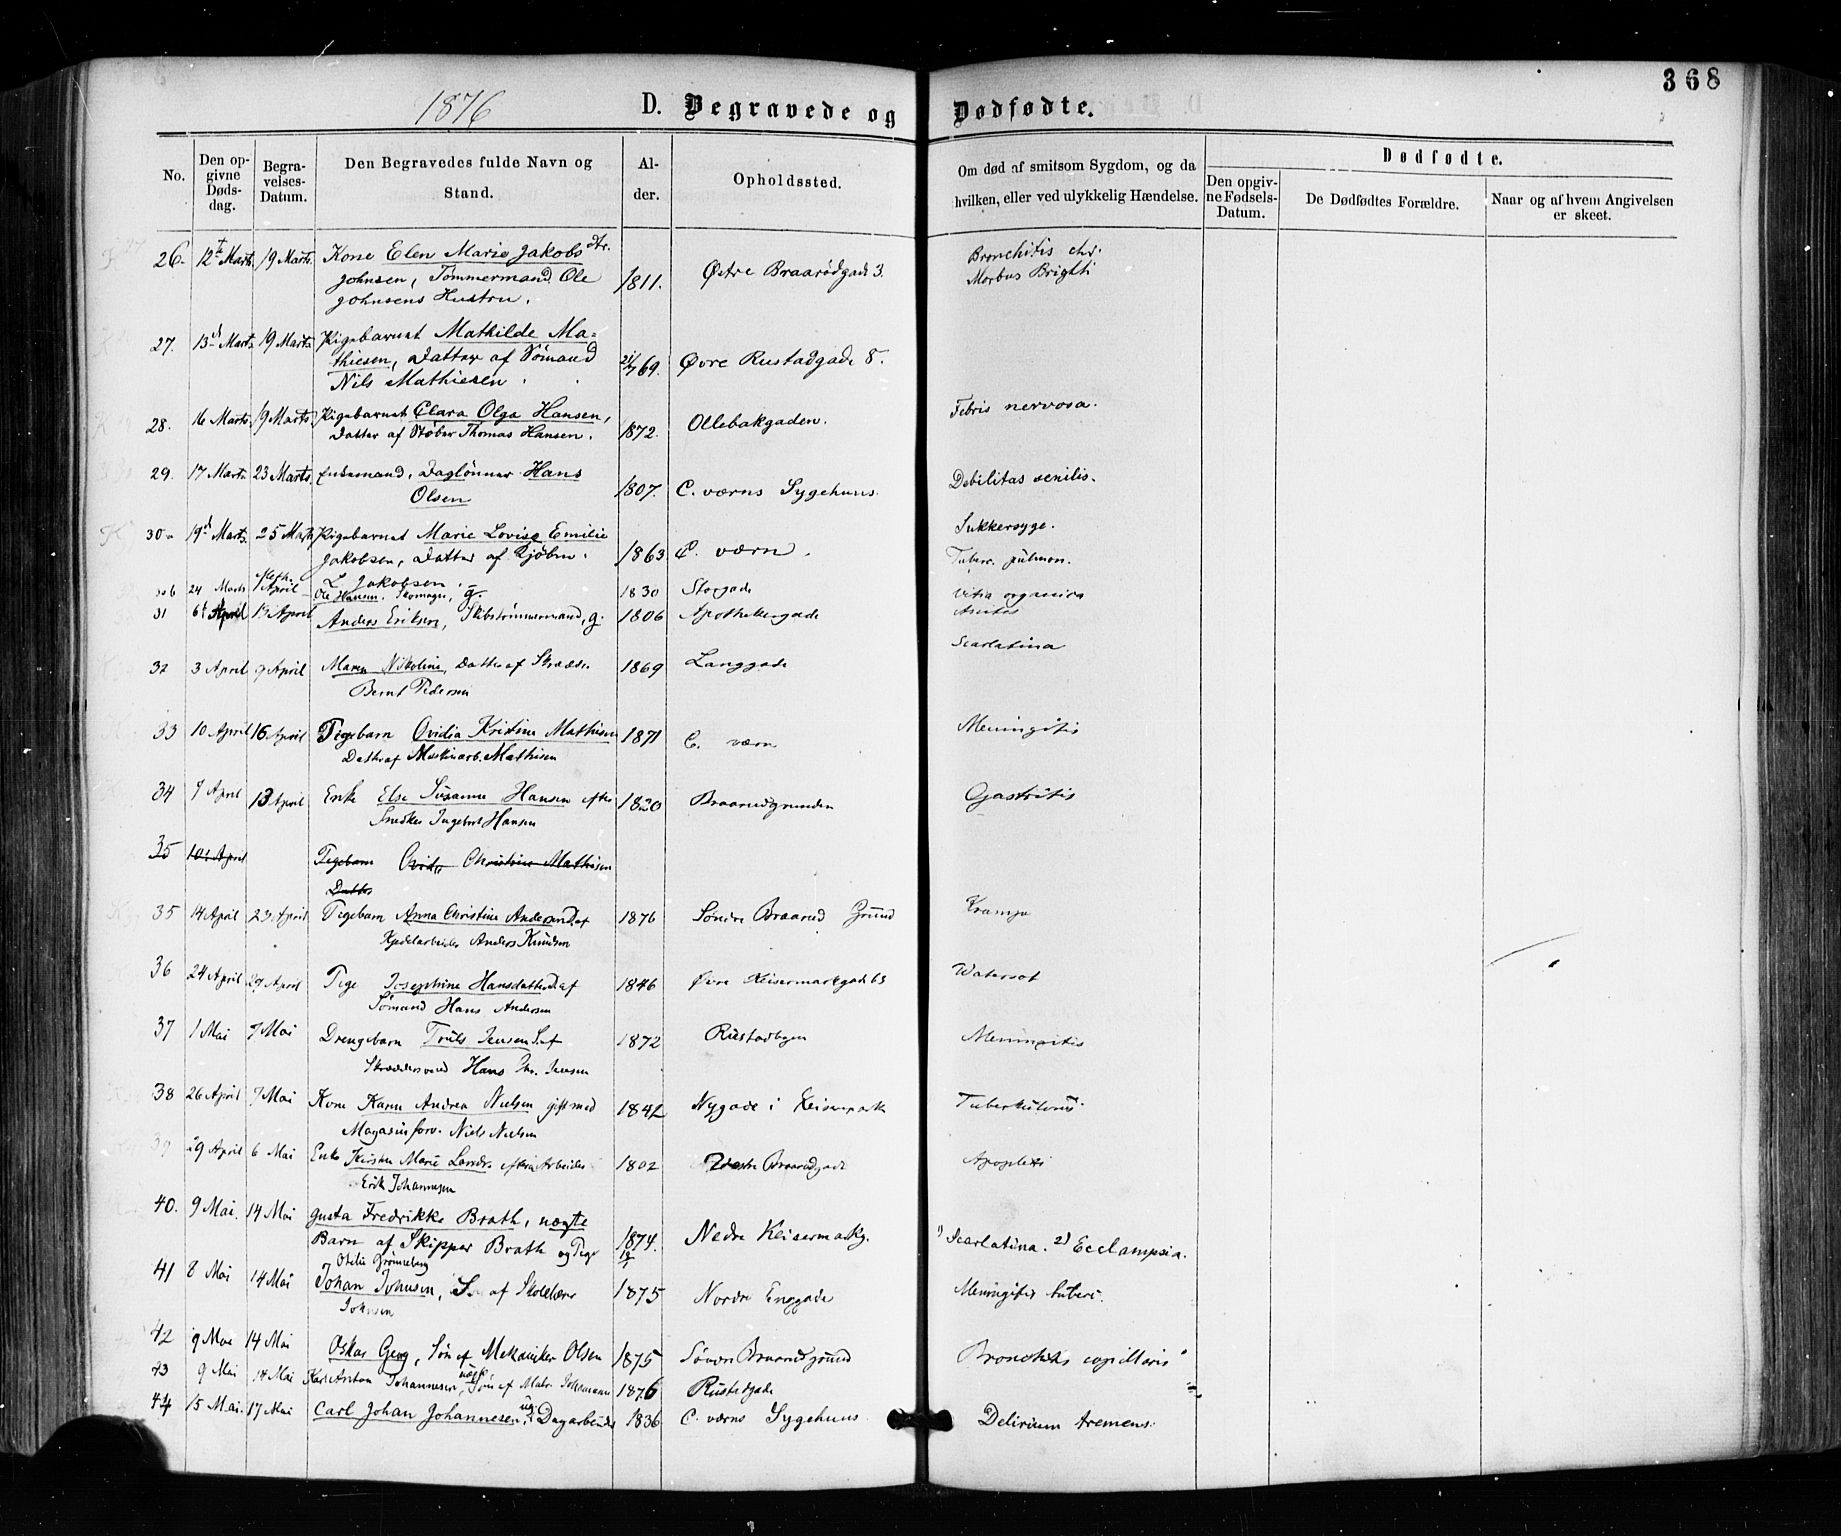 368
1876 D. Begravede og Dødfødte.
No. Den opgivne Dødsdag. Begravelses-Datum. Den Begravedes fulde Navn og Stand. Alder. Opholdssted. Om død af smitsom Sygdom, og da hvilken, eller ved ulykkelig Hændelse. Dødfødte. Den opgivne Fødsels-Datum. De Dødfødtes Forældre. Naar og af hvem Angivelsen er skeet.
26. 12te Marts. 19 Marts. Kone Elen Marie Jakobsdtr. Bronchitis chr.
Johnsen, Tømmermand Ole 1811. Østre Braarødgade 3. Morbus Brigtti
Johnsens Hustru.
27. 13d Marts 19 Marts. Pigebarnet Mathilde Ma-
thiesen, Datter af Sømand 69. Øvre Rustadgade 8.
Nils Mathiesen.
28. 16 Marts. 19 Marts. Pigebarnet Clara Olga Hansen, Ollebakgaden. Febris nervosa.
Datter af Støber Thomas Hansen. 1872.
29. 17 Marts. 23 Marts. Enkemand, Daglønner Hans Debilitas senilis.
Olsen 1807. C. værns Sygehuus.
30a 19d Marts. 25 Marts Pigebarnet Marie Lovise Emilie Sukkersyge.
Jakobsen, Datter af Kjøbm. 1863 C. værn. Tuberc. pulmon.
L. Jakobsen.
30b 24 Marts 1 April Ole Hansen. Skomager, g. 1830 Storgade Vitia organica
31 6t April 13 April Anders Eriksen, Skibstømmermand, g. 1806 Apothekergade
32 3 April 9 April Maren Nikoline, Datter af Skrædder 1869 Langgade Scarlatina
Bernt Pedersen
33 10 April 16 April Pigebarn Ovidia Kristine Mathisen 1871 C. værn Meningitis
Datter af Maskinarb. Mathisen
34 7 April 13 April Enke Else Susanne Hansen efter 1820 Braarudgrunden Gastritis
Snedker Ingebret Hansen
35 10 April Pigebarn Ovidia Christine Mathisen
Datter
35 14 April 23 April Pigebarn Anna Christine Andersen D. af 1876 Søndre Braarud Grund Krampe
Kjedelarbeider Anders Knudsen
36 24 April 29 April Pige Josephine Hansdatter D. af 1846 Øvre Keisermarkgade 63 Watersot
Sømand Hans Andersen
37 1 Mai 7 Mai Drengebarn Truls Jensen S. af 1872 Rustadbyen Meningitis
Skræddersvend Hans Chr. Jensen
38 26 April 7 Mai Kone Karen Andrea Nielsen gift med 1842 Nygade i Keisermark Tuberkulosis
Magasinforv. Niels Nielsen
39 29 April 6 Mai Enke Kirsten Marie Larsdr efter Arbeider 1802 Vestre Braarudgade Apoplexi
Erik Johannesen
40. 9 Mai. 14 Mai Gusta Fredrikke Brath, uægte
Barn af Skipper Brath og Pige 1874. Nedre Keisermarkg. 1) Scarlatina. 2) Ecclampsia.
Otilie Grønneberg
41 8 Mai 14 Mai Johan Johnsen, S. af Skolelærer 1875 Nordre Enggade Meningitis tuberc.
Johnsen
42 9 Mai 14 Mai Oskar Georg, Søn af Mekaniker Olsen 1875 Søndre Braarudgrund Bronchitis capillaris
43 9 Mai 14 Mai Karl Anton Johannesen, uægte Søn af Matr. Johannesen 1876 Rustadgade
44 15 Mai. 17 Mai Carl Johan Johannesen, ug. Dagarbeider 1836 C. værns Sygehuus. Delirium tremens.